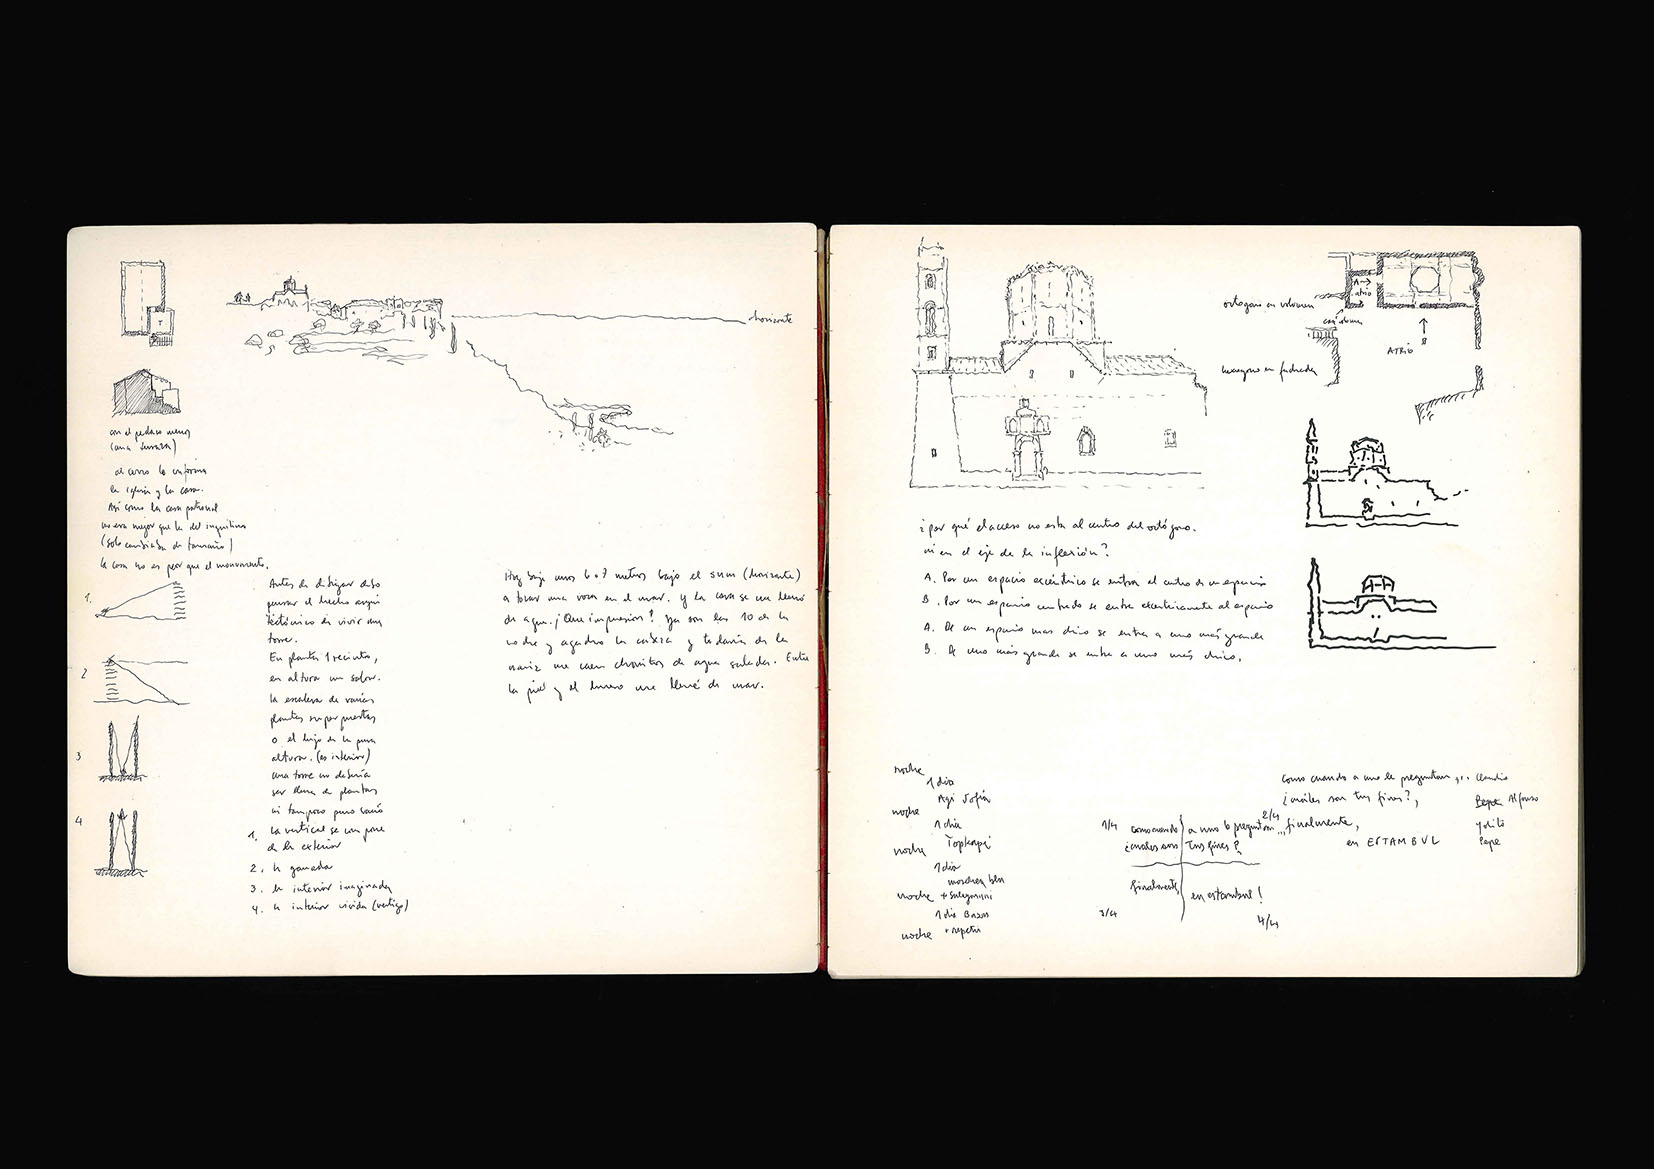 horizonte
T
con el pedazo menos
(una terraza)
al cerro lo informa
la iglesia y la casa.
Así como la casa patronal
no era mejor que la del inquilino
(solo cambiaba de tamaño)
la casa no es peor que el monumento.
1.
2
3
4
Antes de dibujar debo
pensar el hecho arqui
tectónico de vivir una
torre.
En planta 1 recinto,
en altura un salón.
la escalera de varias
plantas superpuestas
o el lujo de la pura
altura. (es interior)
una torre no debería
ser llena de plantas
ni tampoco puro vacío
1. la vertical se impone
de la exterior
2. la ganada
3. la interior imaginada
4. la interior vivida (vértigo)
Hoy bajé unos 6 o 7 metros bajo el suu (horizonte)
a tocar una roca en el mar. Y la cara se me llenó
de agua. ¡Que impresión! Ya son las 10 de la
noche y agacho la cabeza y todavía de la
nariz me caen chorritos de agua salada. Entre
la piel y el hueso me llené de mar.
octógono en volumen
atrio
A
B
ATRIO
en fachada
¿por qué el acceso no está al centro del octógono.
ni en el eje de la inflexión?
A. Por un espacio excéntrico se entra al centro de un espacio
B. Por un espacio centrado se entra excéntricamente al espacio
A. De un espacio mas chico se entra a uno más grande
B. De uno más grande se entra a uno más chico.
noche
1 día
Agi Sofía
noche
1 día
Topkapi
noche
1 día
noche + suleymani
1 día Bazar
noche + repetir
1/4
como cuando
¿cuáles son
2/4
a uno le preguntan ...
tus fines?
finalmente,
3/4
en estambul!
4/4
Como cuando a uno le preguntan ...
¿cuáles son tus fines?,
finalmente,
en ESTAMBUL
Claudio
Pepe Alfonso
Yolito
Pepe